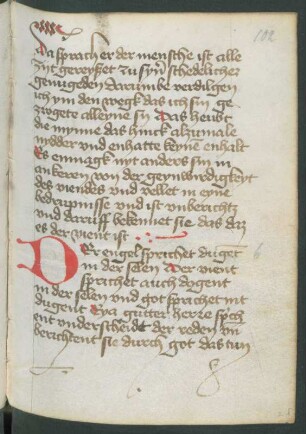 102
Da sprach er der mensche ist alle
zijt gereysset zu syn schedelicher
genugeden darumbe verdilgen
ich ym den wegk das ich sin ge
zogete alleyne sy Das heubt
die mynne das hinck alzumale
nidder und enhatte keyne enhalt
Es enmagk nyt anders sin in
ankeren von der geynwirdigkeyt
des viendes und vellet in eyne
bedrapnisse und ist unberichtz
und daruff bekennet sie das daz
es der vient ist
Der engel sprachet duget
in der selen Der vient
sprachet auch dogent
in der selen und got sprachet mit
dugent Eya gutter herre spch
ent underscheidt der reden vn
berichtent sie durch got das tun